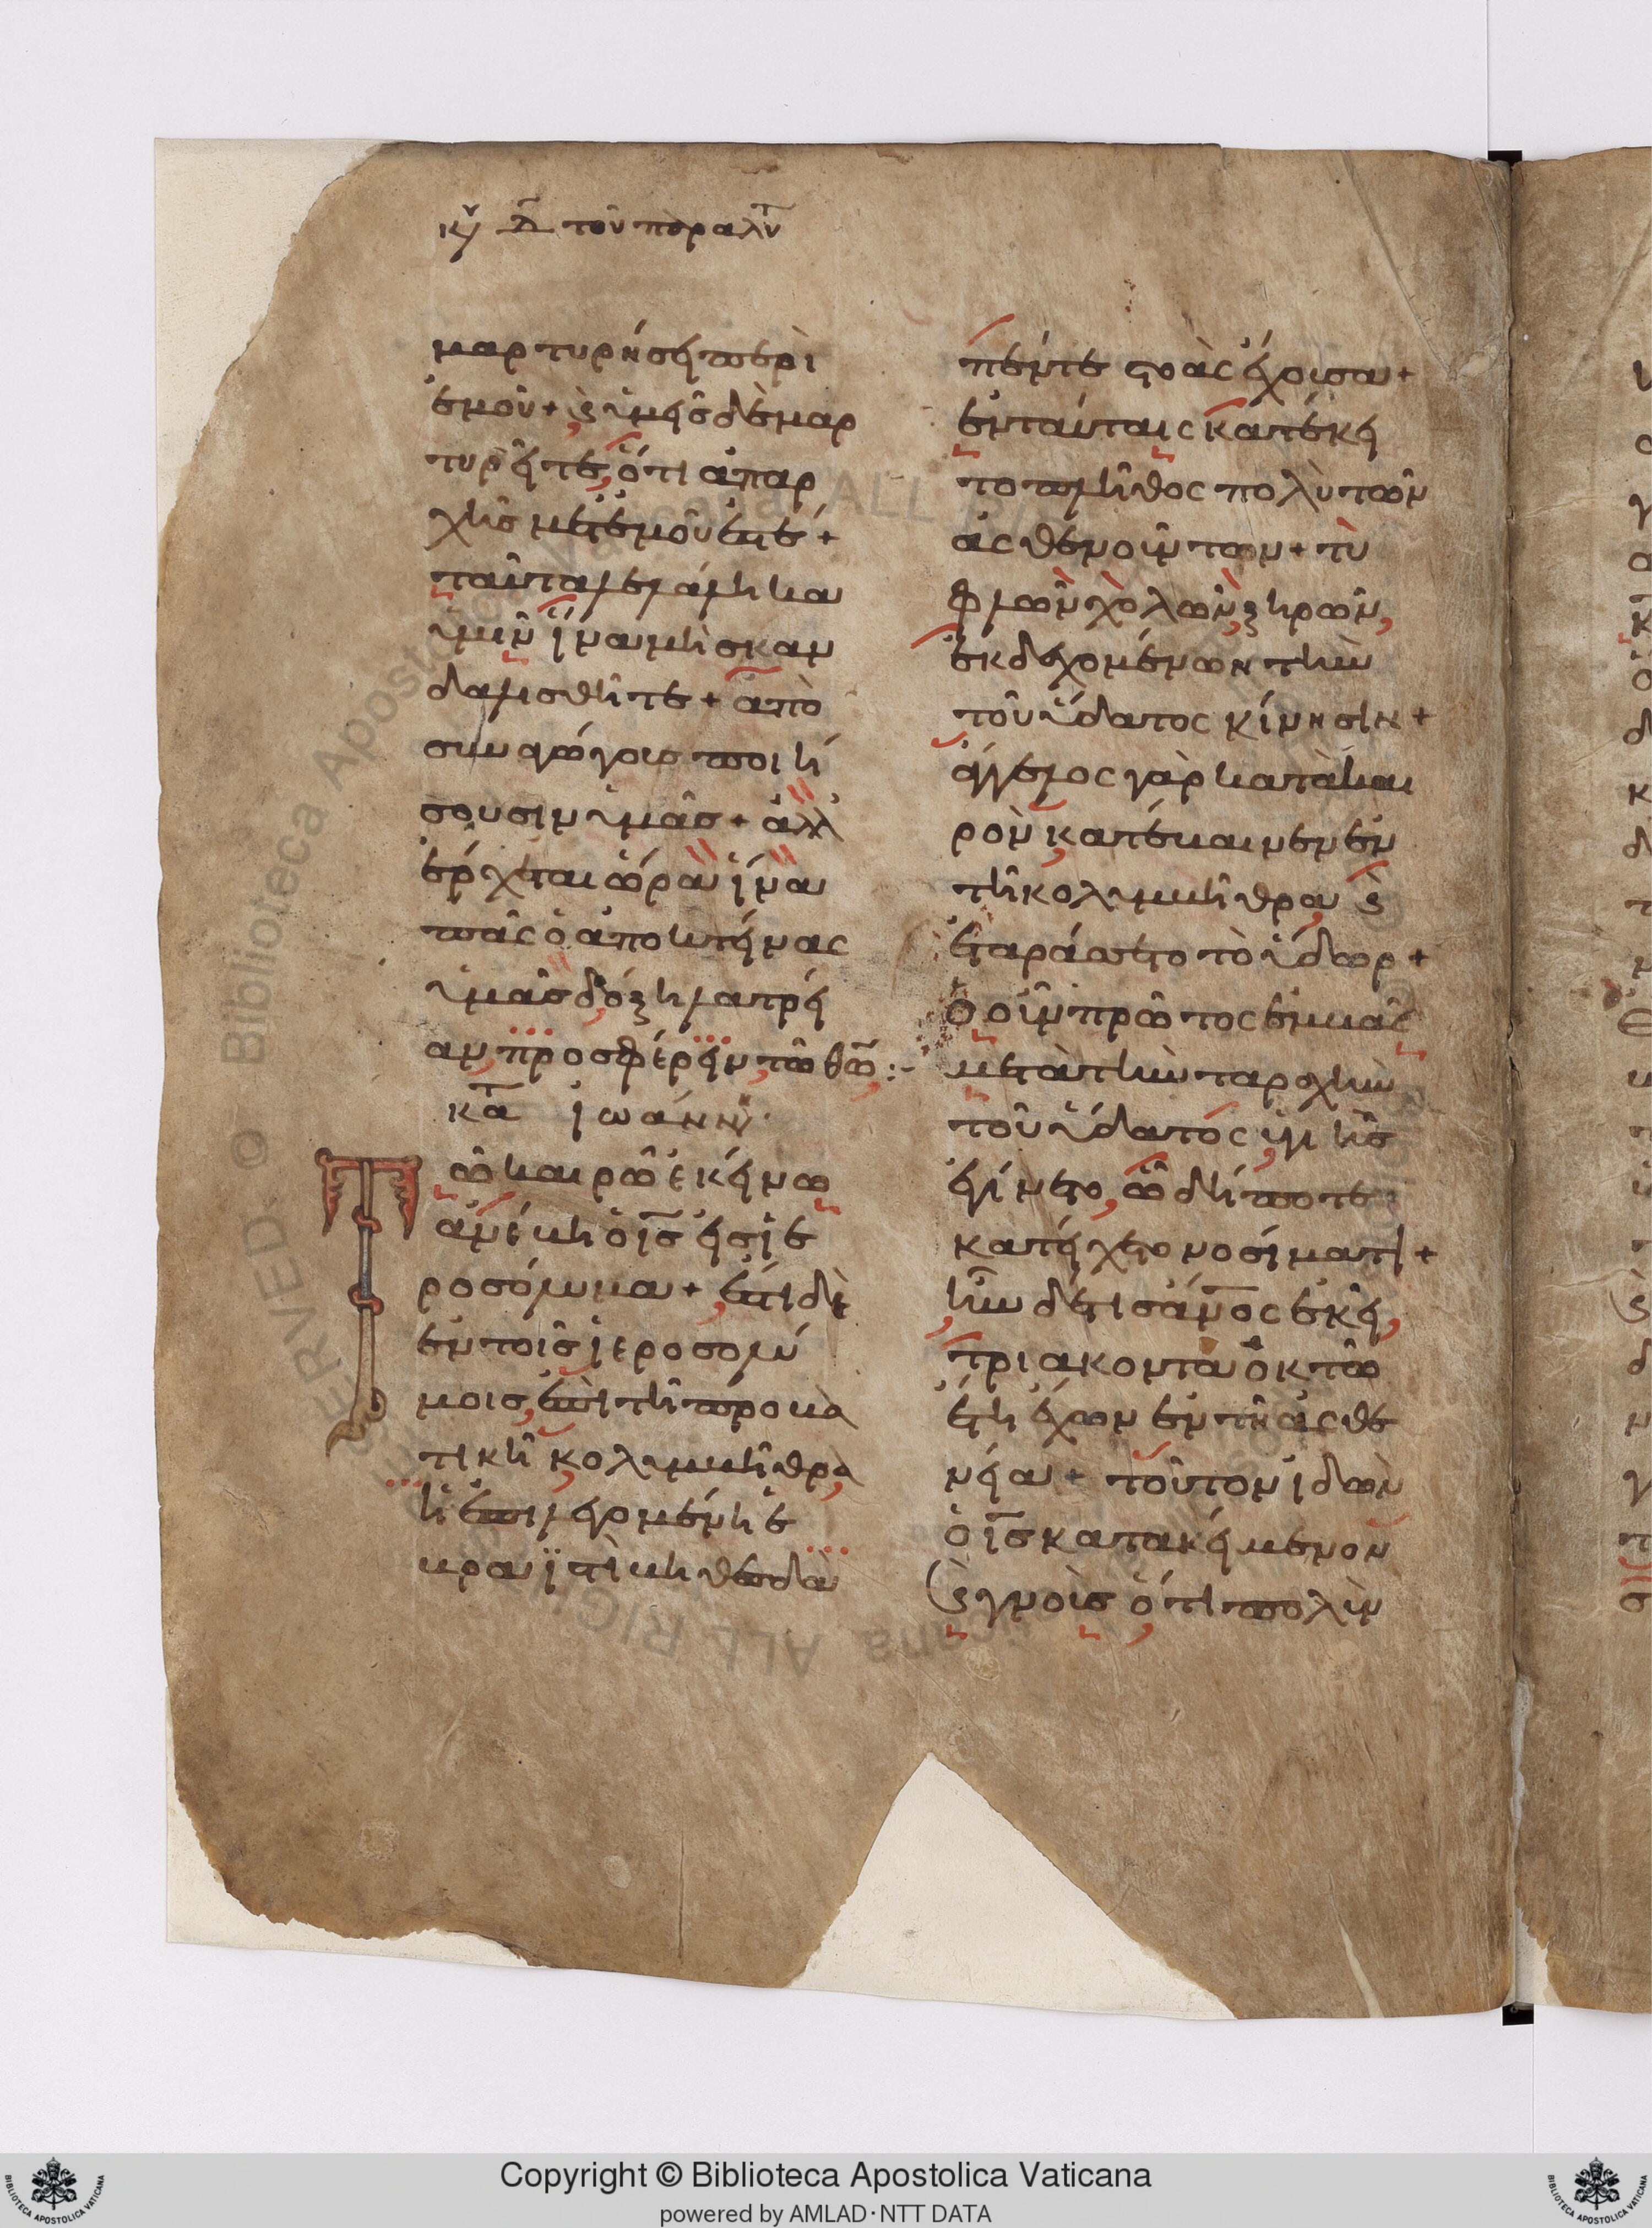 κυ δ τοῦ παραλυτ
μαρτυρήσει περὶ
ἐμοῦ + ϗ ὑμεῖς δὲ μαρ
τυρεῖτε, ὅτι ἀπαρ
χῆς μετ' ἐμοῦ ἐστέ +
ταῦτα λελάληκα
ὑμῖν ἵνα μὴ σκαν
δαλισθῆτε + ἀπο
συναγώγοις ποιή
σουσιν ὑμᾶς + ἀλλ'
ἔρχεται ὥρα ἵνα
πᾶς ὁ ἀποκτήνας
ὑμᾶς δόξη λατρεί
αν προσφέρειν τῶ θω :-
κατ ἰωάνν
Τῶ καιρῶ ἐκείνω
ἀνέβη ὁ ις εἰς ἱε
ροσόλυμα + ἔστι δὲ
ἐν τοῖς ἱεροσολύ
μοις, ἐπὶ τῆ προβα
τικῆ κολυμβήθρα
ἡ ἐπιλεγομένη ἑ
βραϊστὶ βηθεσδὰ
πέντε στοὰς ἔχουσα +
ἐν ταύταις κατέκει
το πλῆθος πολὺ τῶν
ἀσθενούντων + τυ
φλῶν, χολῶν, ξηρῶν,
ἐκδεχομένων τὴν
τοῦ ὕδατος κίνησιν +
ἄγγελος γὰρ κατὰ και
ρὸν κατέβαινεν ἐν
τῆ κολυμβήθρα, ϗ
ἐταράσσετο τὸ ὕδωρ +
ὁ οὖν πρῶτος ἐμβὰς
μετὰ τὴν ταραχὴν
τοῦ ὕδατος, ὑγιὴς
ἐγίνετο, ὧ δήποτε
κατείχετο νοσίματι +
ἦν δέ τις ανος ἐκεῖ,
τριάκοντα ὀκτὼ
ἔτη ἔχων ἐν τῆ ἀσθε
νεία + τοῦτον ἰδὼν
ὁ ις κατακείμενον
ϗ γνοὺς ὅτι πολὺν
Copyright © Biblioteca Apostolica Vaticana
powered by AMLAD·NTT DATA